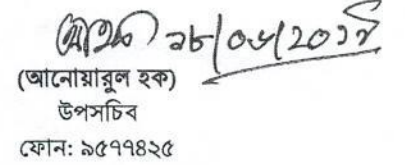 ২৮/০৬/২০১৭
(আনোয়ারুল হক)
উপসচিব
ফোন: ৯৫৭৭৪২৫